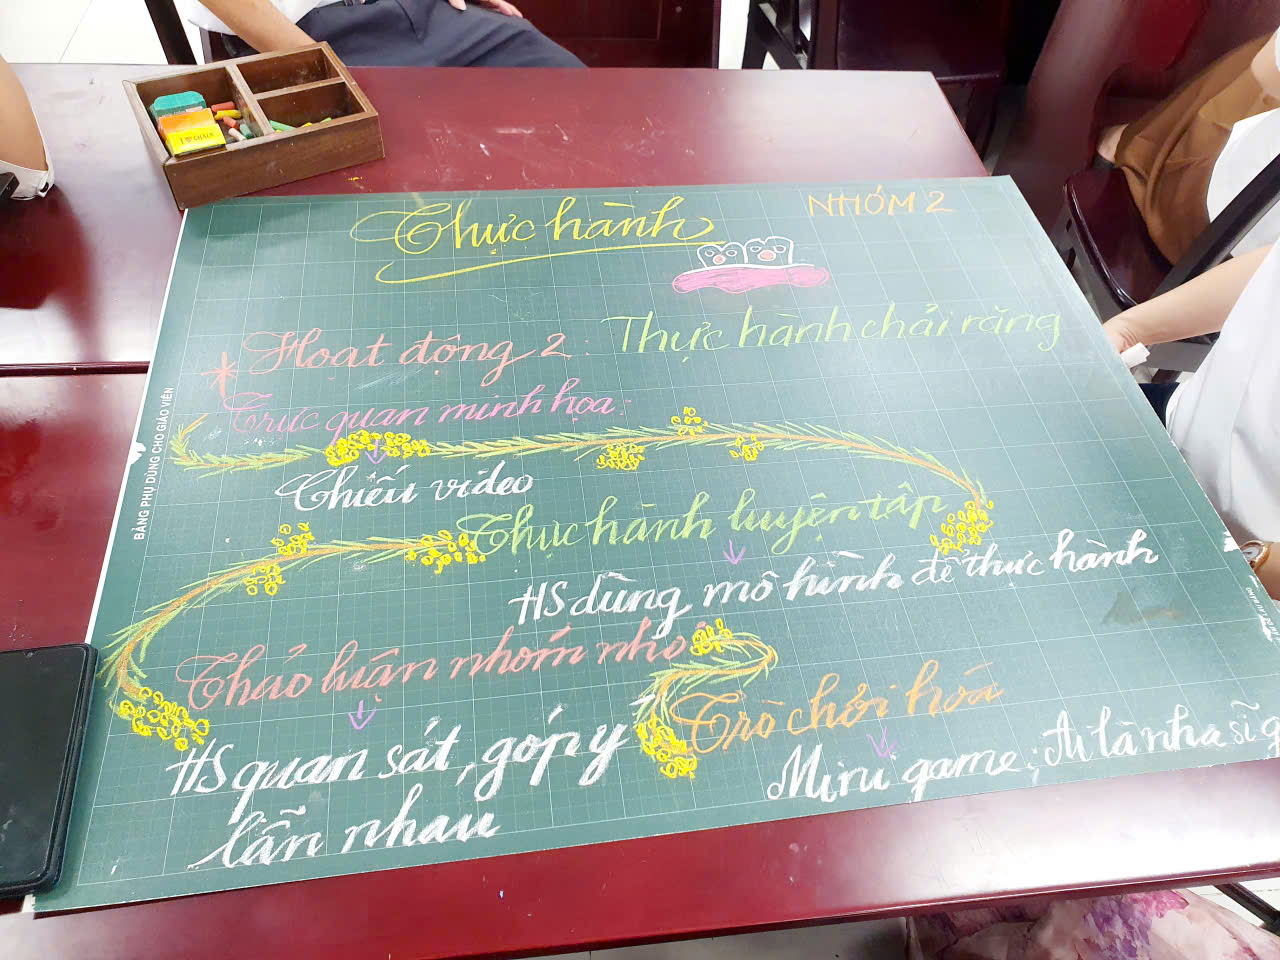 Thực hành
NHÓM 2
Hoạt động 2: Thực hành chải răng
Trực quan minh họa:
Chiếu video
Thực hành luyện tập
HS dùng mô hình để thực hành
Thảo luận nhóm nhỏ
HS quan sát, góp ý
lẫn nhau
Trò chơi hoá
Mini game: Ai là nha sĩ
BẢNG PHỤ DÙNG CHO GIÁO VIÊN